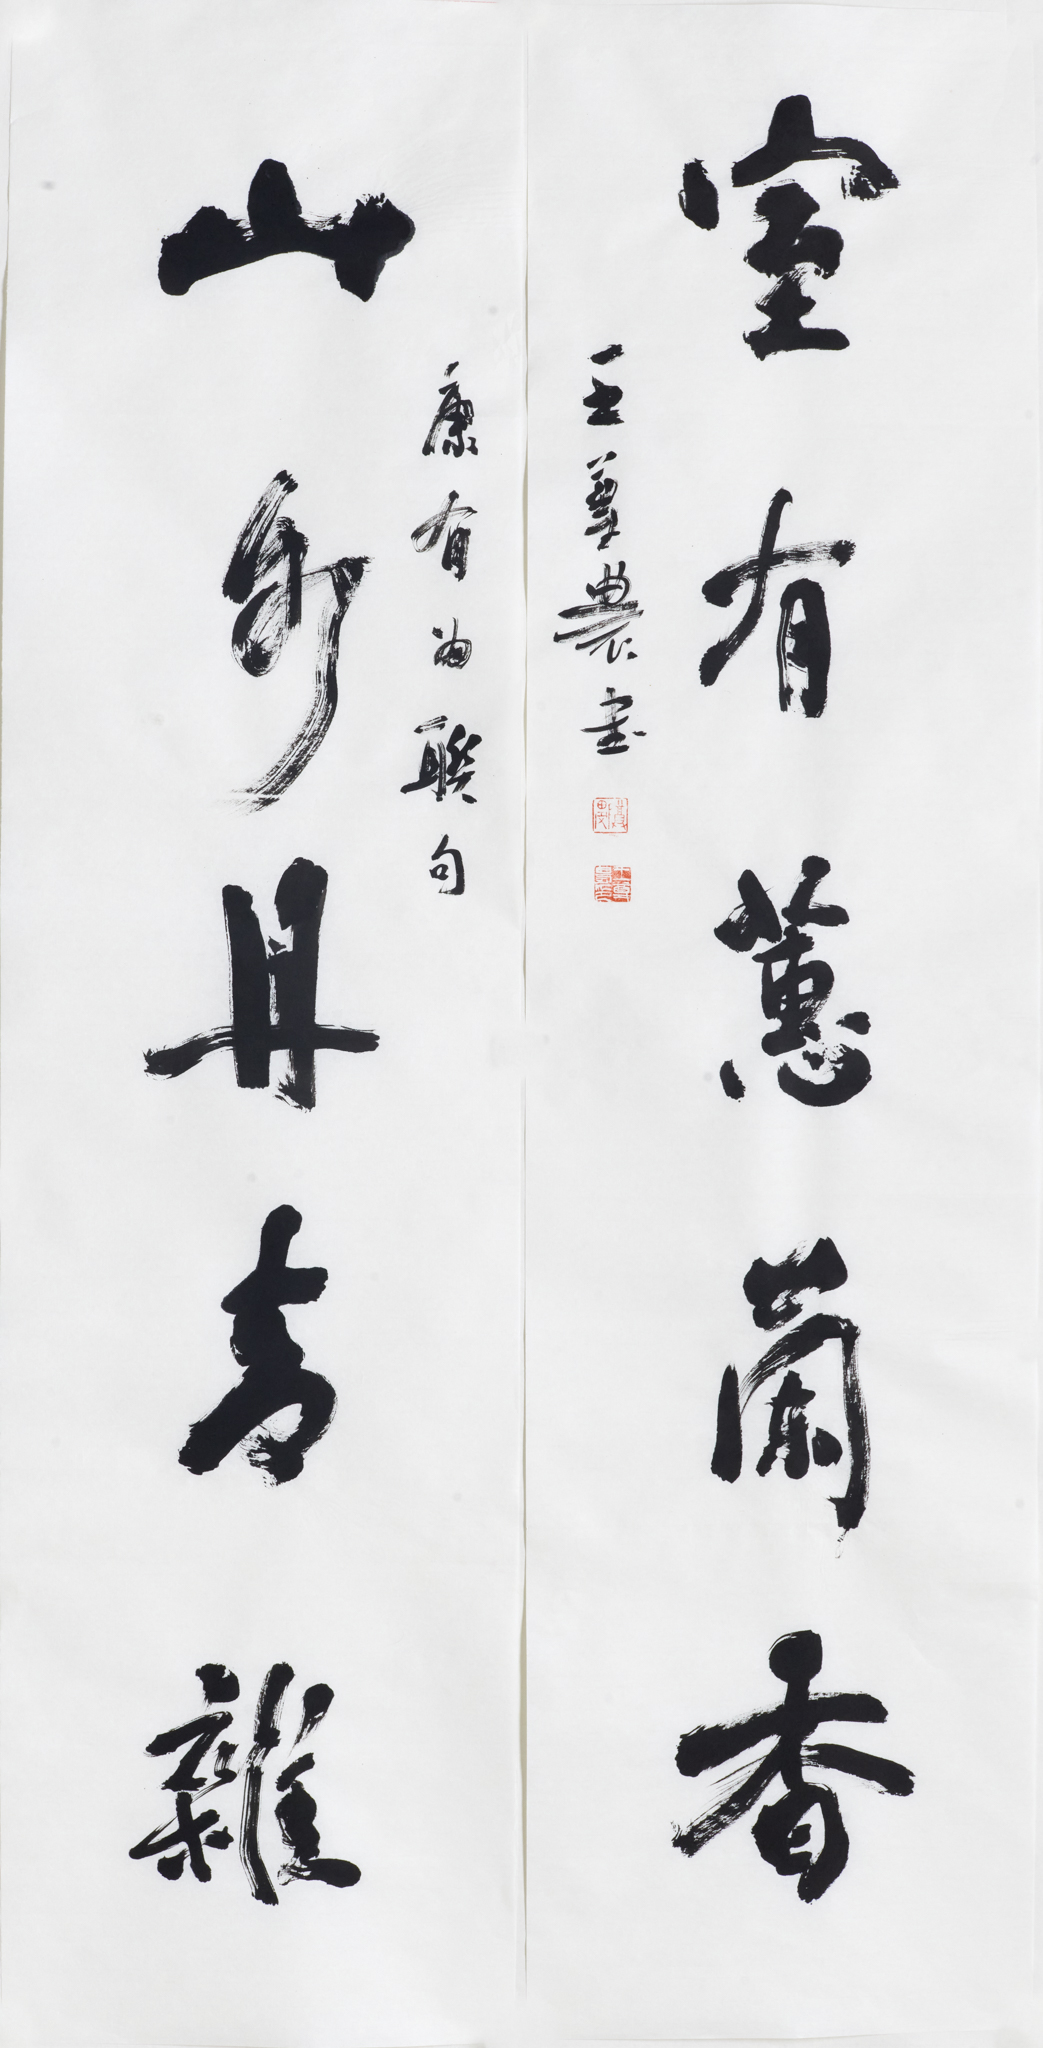 室有蕙蘭香
王尊農書
康有為聯句
山水丹青雜